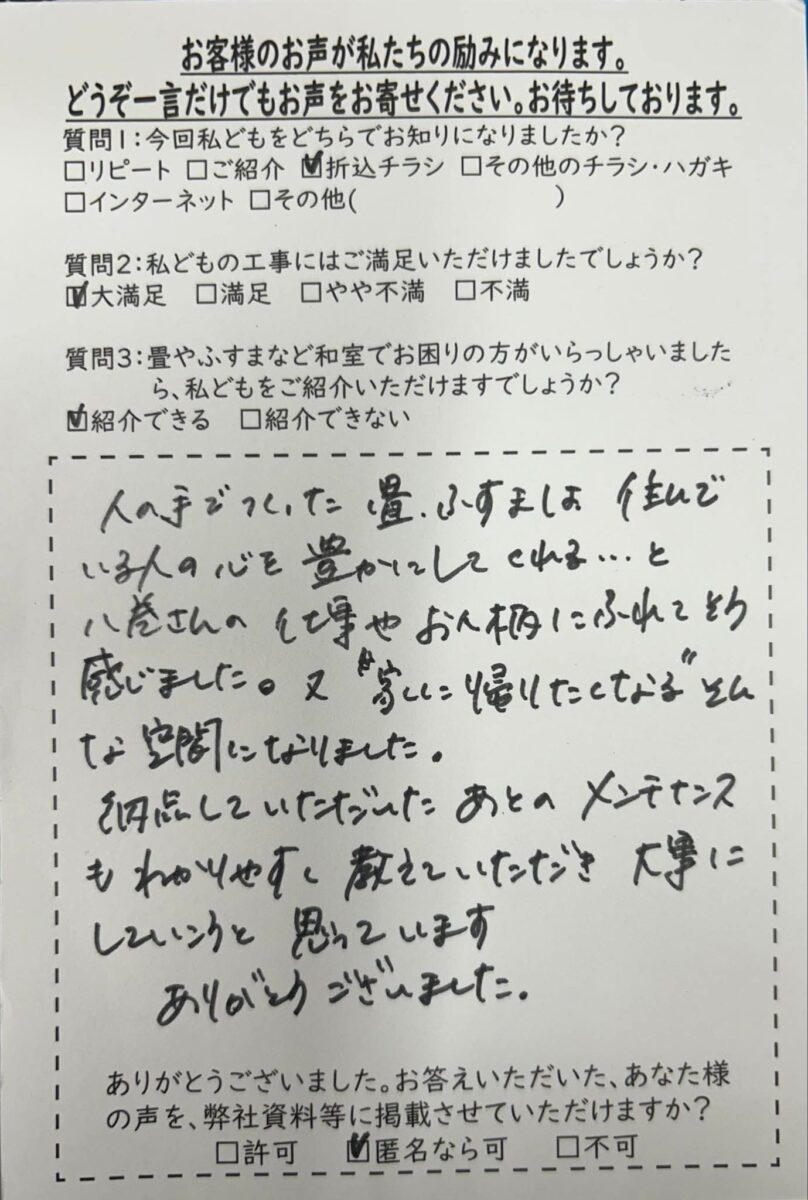 お客様のお声が私たちの励みになります。
どうぞ一言だけでもお声をお寄せください。お待ちしております。
質問1:今回私どもをどちらでお知りになりましたか?
□リピート □ご紹介 ☑折込チラシ □その他のチラシ・ハガキ
□インターネット □その他( )
質問2:私どもの工事にはご満足いただけましたでしょうか?
☑大満足 □満足 □やや不満 □不満
質問3:畳やふすまなど和室でお困りの方がいらっしゃいました
ら、私どもをご紹介いただけますでしょうか?
☑紹介できる □紹介できない
人の手でつくった畳、ふすまは 住んで
いる人の心を豊かにしてくれる…と
八巻さんの仕事やお人柄にふれてそう
感じました。又“家に帰りたくなる”そん
な空間になりました。
納品していただいたあとのメンテナンス
もわかりやすく教えていただき 大事に
していこうと思っています
ありがとうございました。
ありがとうございました。お答えいただいた、あなた様
の声を、弊社資料等に掲載させていただけますか?
□許可 ☑匿名なら可 □不可